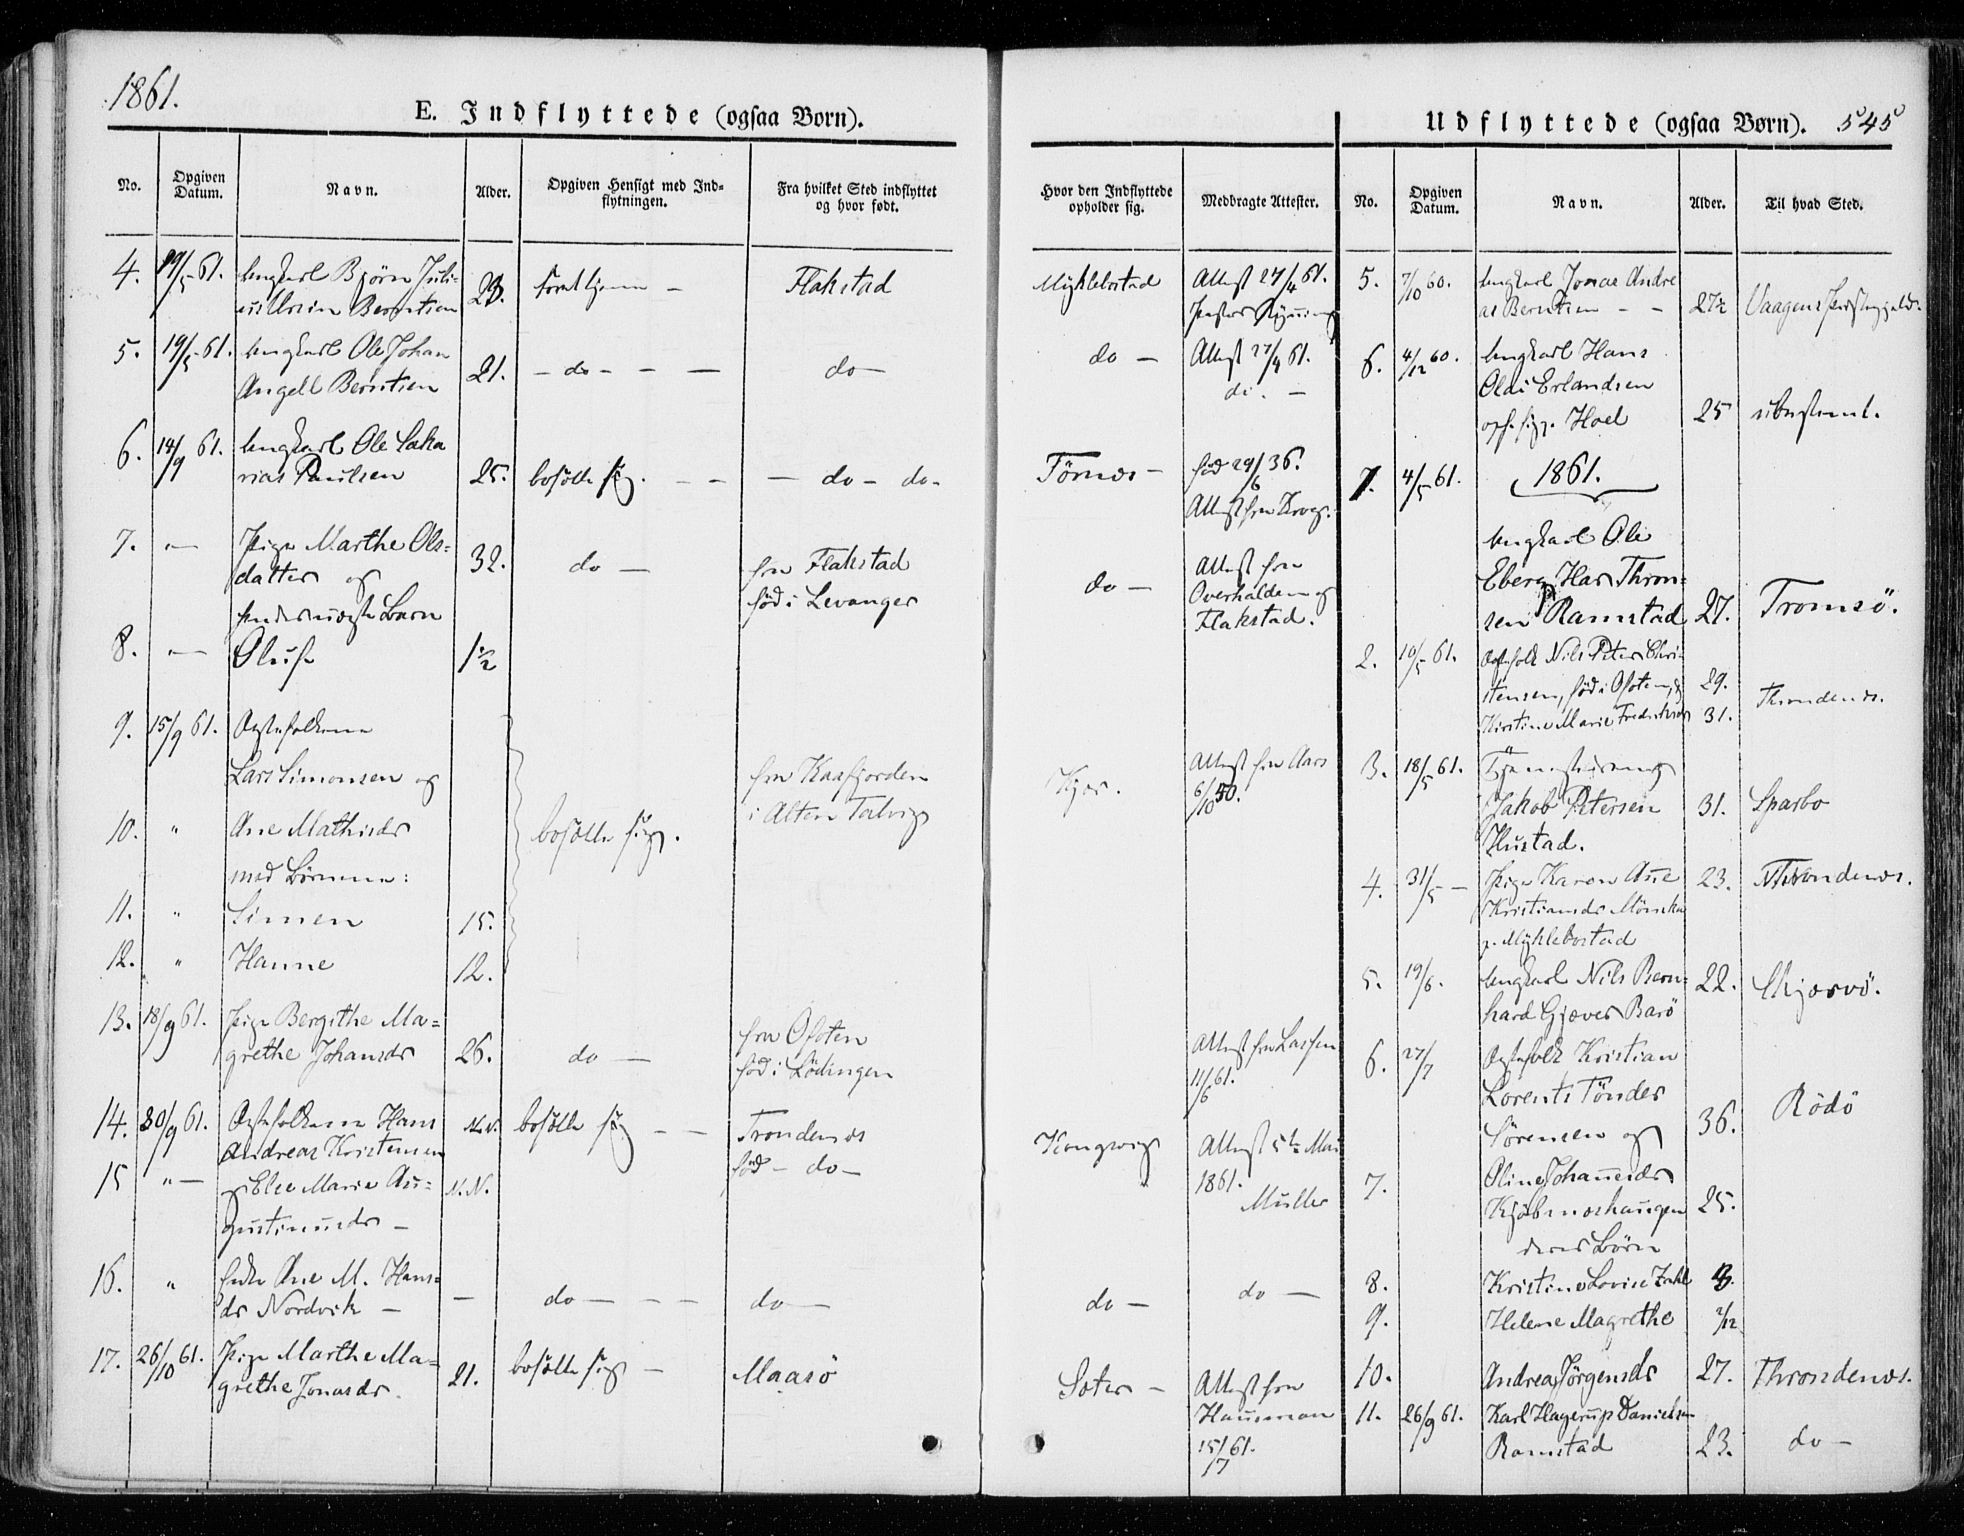 1861.
E. Indflyttede (ogsaa Børn).
No.
Opgiven Datum.
Navn.
Alder.
Opgiven Hensigt med Indflytningen.
Fra hvilket Sted indflyttet og hvor født.
Hvor den Indflyttede opholder sig.
Meddragte Attester.
4. 19/5 61. Ungkarl Bjørn Juli-
Berntsen 23. Flakstad Myklebostad Attest 27/4 61.
5. 19/5 61. Ungkarl Ole Johan
Angell Berntsen 21. – do – – – do – do – Attest 27/4 61.
6. 14/9 61. Ungkarl Ole Saka
rias Paulsen 25. bosætte sig. – – – do – do – Törnæs – Född 29/6 36.
Attest fra Krog.
7. – Pige Marthe Ols-
datter og 32. do – fra Flakstad
född i Levanger do – Attest fra
Overhalden og
Flakstad.
Barn
8. – Oluf 1½
9. 15/9 61. Ægtefolkene
Lars Simonsen og fra Kaafjorden
i Alten Talvig Kjær. Attest fra Aars
6/10 50.
10. " Ane Mathisdr bosætte sig.
med Børnene:
11. " Simen 15.
12. " Hanne 12.
13. 18/9 61. Pige Bergithe Ma-
grethe Johansdr 26. do – fra Ofoten
född i Lödingen Attest fra Lassen
11/6 61.
14. 30/9 61. Ægtefolkene Hans
Andreas Kristensen N.N. bosætte sig – – Trondenæs
född – do – Kongsvig Attest 5te Mai
1861.
Müller
15 " – Else Marie Au-
gustinusdr – N.N.
16. " Enke Ane M. Hans-
dr Nordvik – – do – – – do – do – do –
17. 26/10 61. Pige Marthe Ma-
grethe Jonasdr. 21. bosætte sig – Maasö Soter – Attest fra
Hausman
15/7 61.
Udflyttede (ogsaa Børn). 545
No.
Opgiven Datum.
Navn.
Alder.
Til hvad Sted.
5. 7/10 60. Ungkarl Jonas Andre
as Berntsen – – 27½ Vaagens Præstegjeld.
6. 4/12 60. Ungkarl Hans
Oldi Erlandsen
Hoel 25 ubestemt.
1. 4/5 61. 1861.
Ungkarl Ole
Eberg Has Thron-
sen Ramstad 27. Tromsö.
2. 10/5 61. Ægtefolk Nils Peter Chri-
stensen, född i Ofoten, & 29.
Kirstine Marie Fredriksdr 31. Throndenæs.
3. 18/5 61. Tjenestedreng
Jakob Petersen 31. Sparbo
Hustad.
4. 31/5 – Pige Karen Ane 23. Throndenæs.
Kristiansdr
p. Myklebostad
5. 19/6. Ungkarl Nils Bern-
hard Gjæver Barö 22. Skjærvö.
6. 27/7 Ægtefolk Kristian
Lorents Tönder
Sörensen og 36. Rödö
7. Oline Johannesdr
Kjöbmoshaugen 25.
deres Börn
8. Kristine Lovise Zahl 3.
9. Helene Magrethe 2/12
10. Andrea Jörgensdr 27. Throndenæs.
11. 26/9 61. Karl Hagerup Danielsen
Ramstad 23. do –